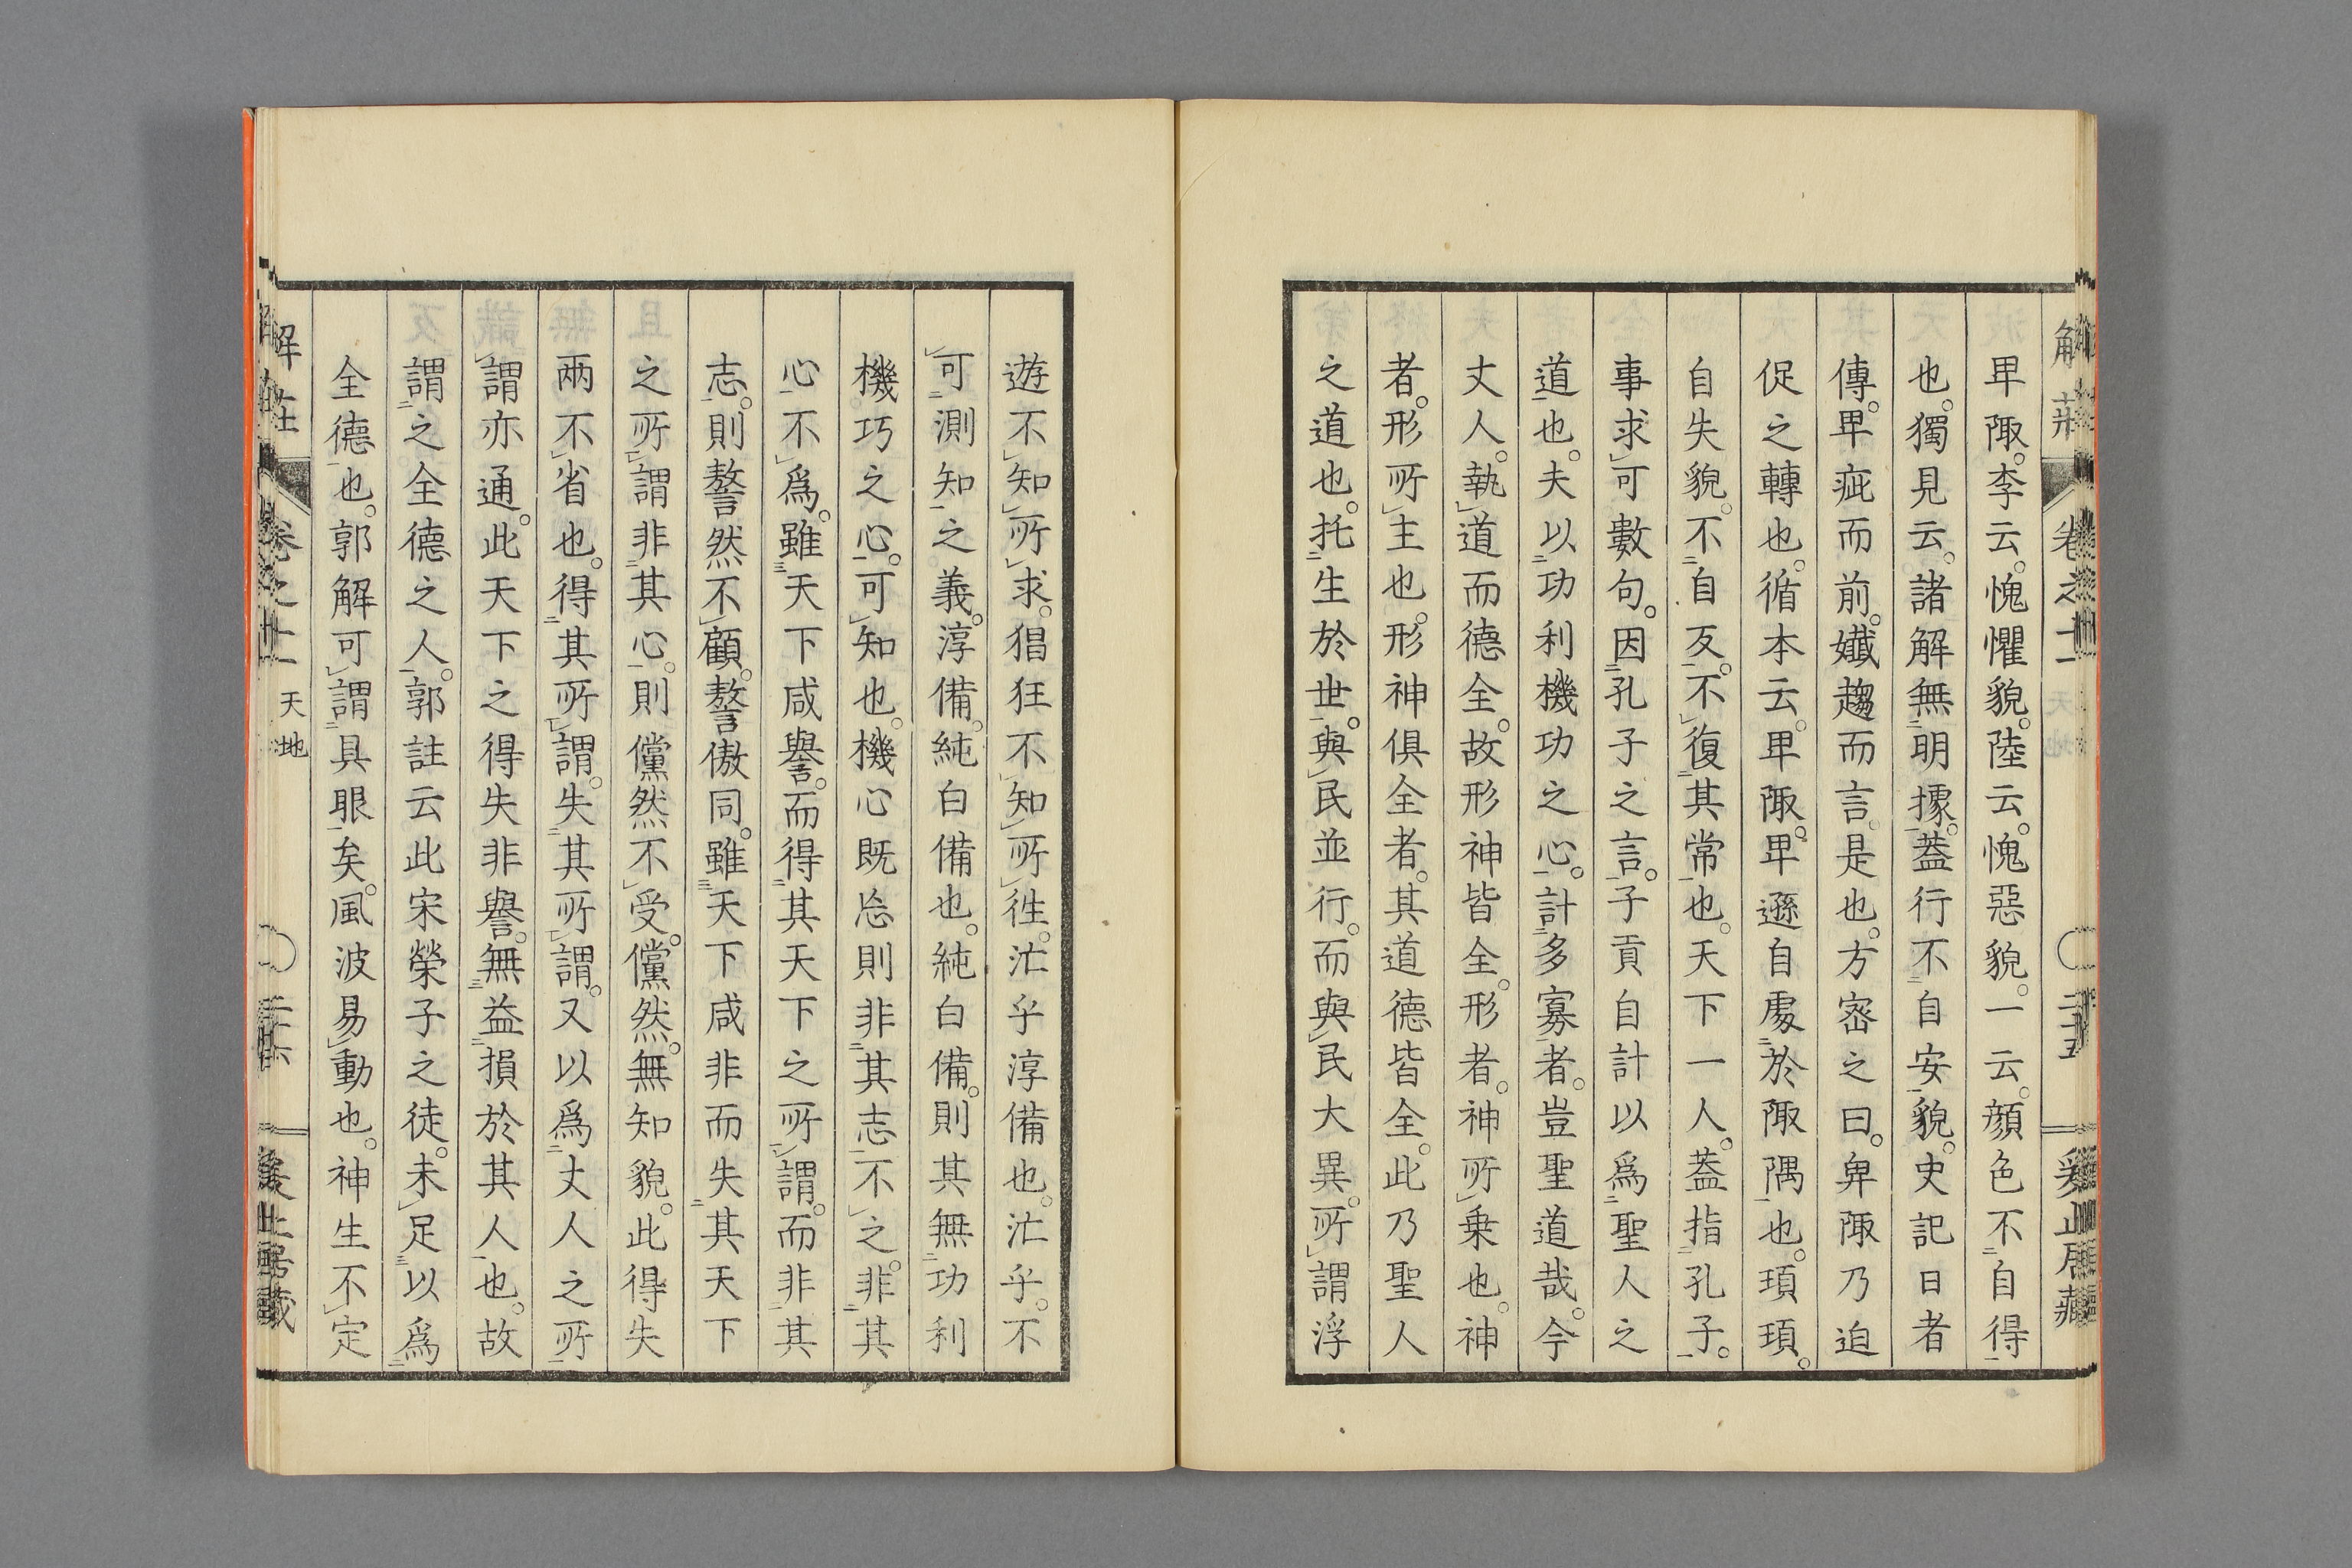 卑陬。李云。愧懼貌。陸云。愧惡貌。一云。顏色不自得
也。獨見云。諸解無明據。葢行不自安貌。史記日者
傳。卑疵而前。孅趨而言。是也。方密之曰。卑陬乃迫
促之轉也。循本云。卑陬。卑遜自處於陬隅也。頊頊。
自失貌。不自反。不復其常也。天下一人。葢指孔子。
事求可數句。因孔子之言。子貢自計以爲聖人之
道也。夫以功利機功之心。計多寡者。豈聖道哉。今
丈人。執道而德全。故形神皆全。形者。神所乗也。神
者。形所主也。形神俱全者。其道德皆全。此乃聖人
之道也。托生於世。與民並行。而與民大異。所謂浮
遊不知所求。猖狂不知所徃。汒乎淳備也。汒乎。不
可測知之義。淳備。純白備也。純白備。則其無功利
機巧之心。可知也。機心既忘則非其志不之。非其
心不爲。雖天下咸譽。而得其天下之所謂。而非其
志。則謷然不顧。謷傲同。雖天下咸非而失其天下
之所謂非其心。則儻然不受。儻然。無知貌。此得失
兩不省也。得其所謂。失其所謂。又以爲丈人之所
謂亦通。此天下之得失非譽。無益損於其人也。故
謂之全德之人。郭註云此宋榮子之徒。未足以爲
全德也。郭解可謂具眼矣。風波易動也。神生不定
解莊
卷之十二
天地